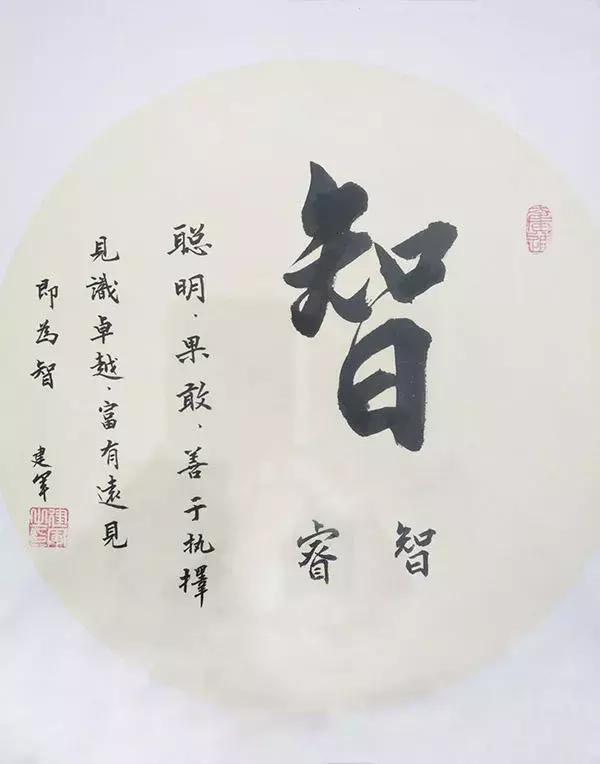 智
睿智
聪明、果敢、善于执擇
見識卓越、富有遠見
即為智
建军